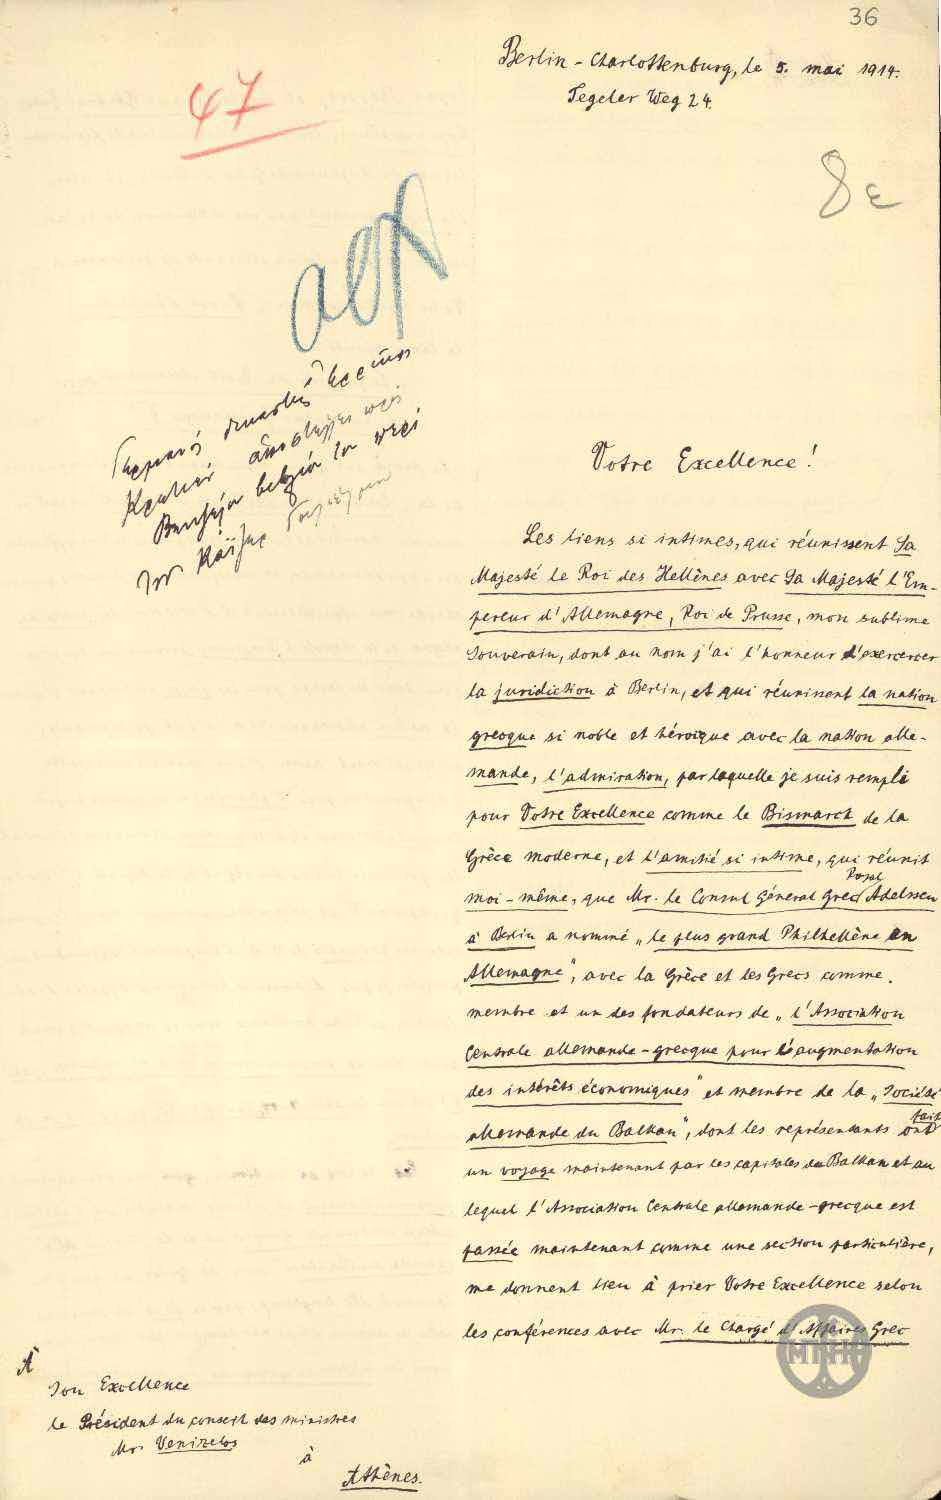 36
Berlin-Charlottenburg, le 5. mai 1914.
Tegeler Weg 24.
47
8ε
Γερμανός δικαστής
Κρατιεν αποστέλλει προς
Βενιζέλον βιβλίο του περί
του Κάιζερ Γουλιέλμου
Votre Excellence!
Les liens si intimes, qui réunissent Sa
Majesté le Roi des Hellènes avec Sa Majesté l'Em-
pereur d'Allemagne, Roi de Prusse, mon sublime
Souverain, dont au nom j'ai l'honneur d'exercercer
la juridiction à Berlin, et qui réunissent la nation
grecque si noble et héroique avec la nation alle-
mande, l'admiration, par laquelle je suis rempli
pour Votre Excellence comme le Bismarck de la
Grèce moderne, et l'amitié si intime, qui réunit
moi-même, que Mr. le Consul Général Grec Royal Adelssen
à Berlin a nommé „le plus grand Philhellène en
Allemagne", avec la Grèce et les Grecs comme
membre et un des fondateurs de „l'Association
Centrale allemande-grecque pour l'augmentation
des intérêts économiques" et membre de la „Société
allemande du Balkan", dont les représentants ont fait
un voyage maintenant par les capitales du Balkan et au
lequel l'Association Centrale allemande-grecque est
passée maintenant comme une section particulière,
me donnent lieu à prier Votre Excellence selon
les conférences avec Mr. le Chargé d'Affaires Grec
À
Son Excellence
le Président du conseil des ministres
Mr. Venizelos
à
Athènes.